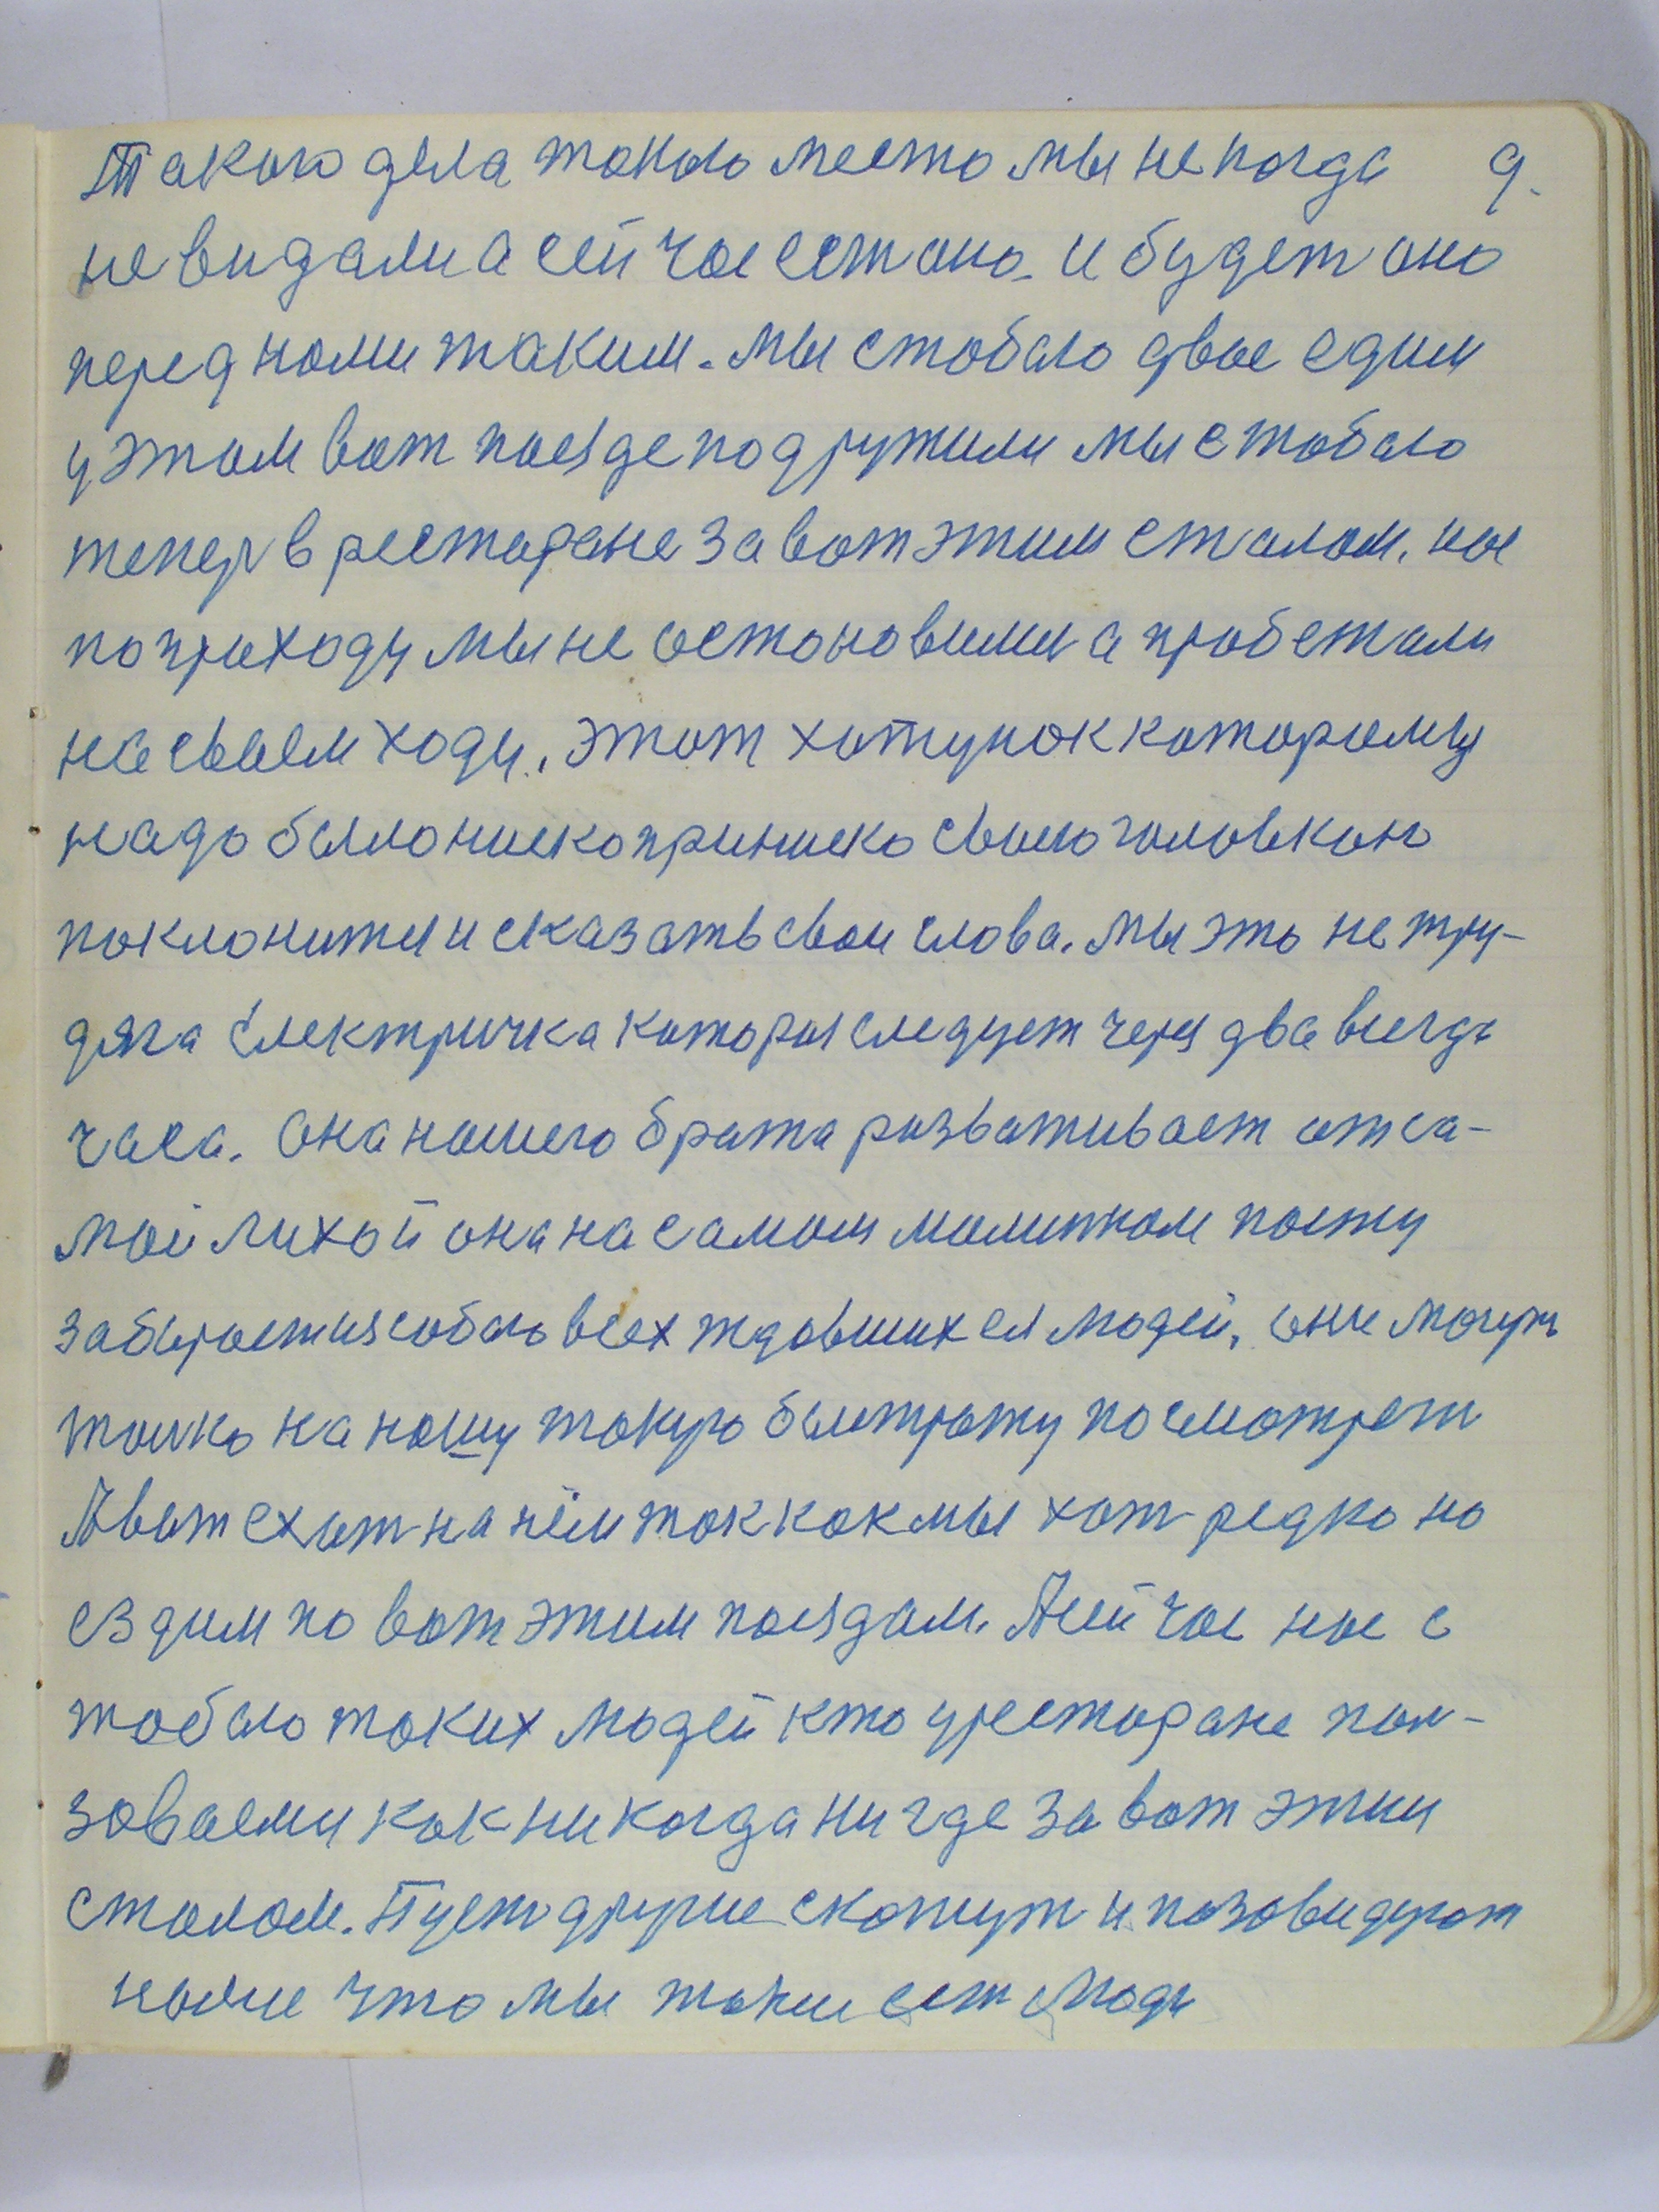 Такого дела такого места мы некогда 9.
не видали а сей час ест оно. и будет оно
перед нами таким. мы с тобаю двое едим
у этом вот поезде подружили мы с тобаю
тепер в ресторане за вот этим сталом. нас
по приходу мы не остоновили а пробежали
на своем ходу. этот хотунок которому
надо было ниско прениско своею головкою
поклонится и сказать свои слова. мы это не тру-
дяга Електричка которая следует через два всегда
часа. она нашего брата развaживает от са-
мой лихой она на самом малитком посту
забирает из собою всех ждавшихся людей, они могут
толко на нашу такую быстроту посмотрет
А вот ехат на нём так как мы хот редко но
ездим по вот этим поездам. А сей час нас с
тобаю таких людей кто у ресторане пол-
зоваеми как никогда ни где за вот этим
сталом. Пуст другие скажут и позовидуют
нами что мы такие ест люди